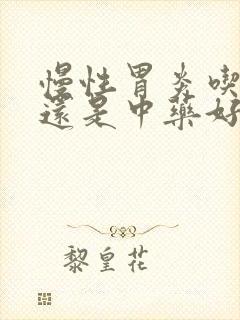 慢性胃炎喫
還是中藥好
黎皇花